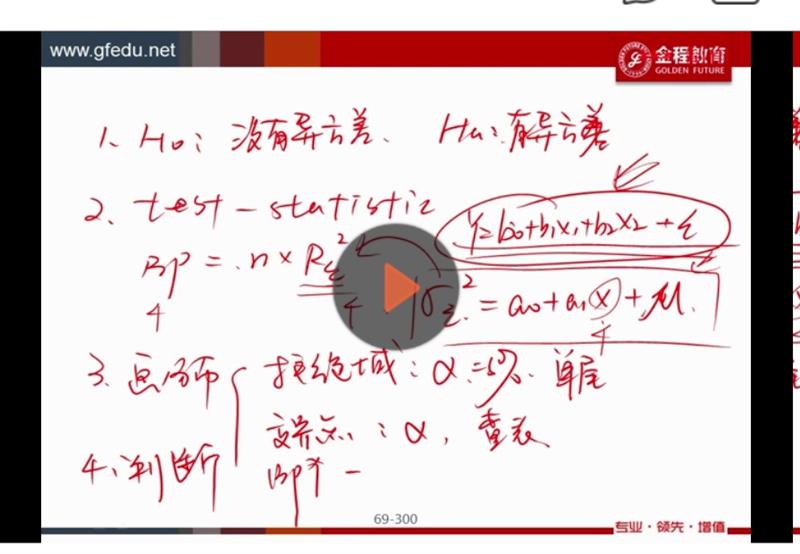 www.gfedu.net
金程教育
GOLDEN FUTURE
1、H₀：没有异方差、 Ha：有异方差
2、test-statistic
Y=b₀+b₁x₁+b₂x₂+ε
BP=n×Rε²
σε²=a₀+a₁x+μ.
3、画分布 拒绝域：α=5%. 单尾
α，查表
4、判断
69-300
专业·领先·增值